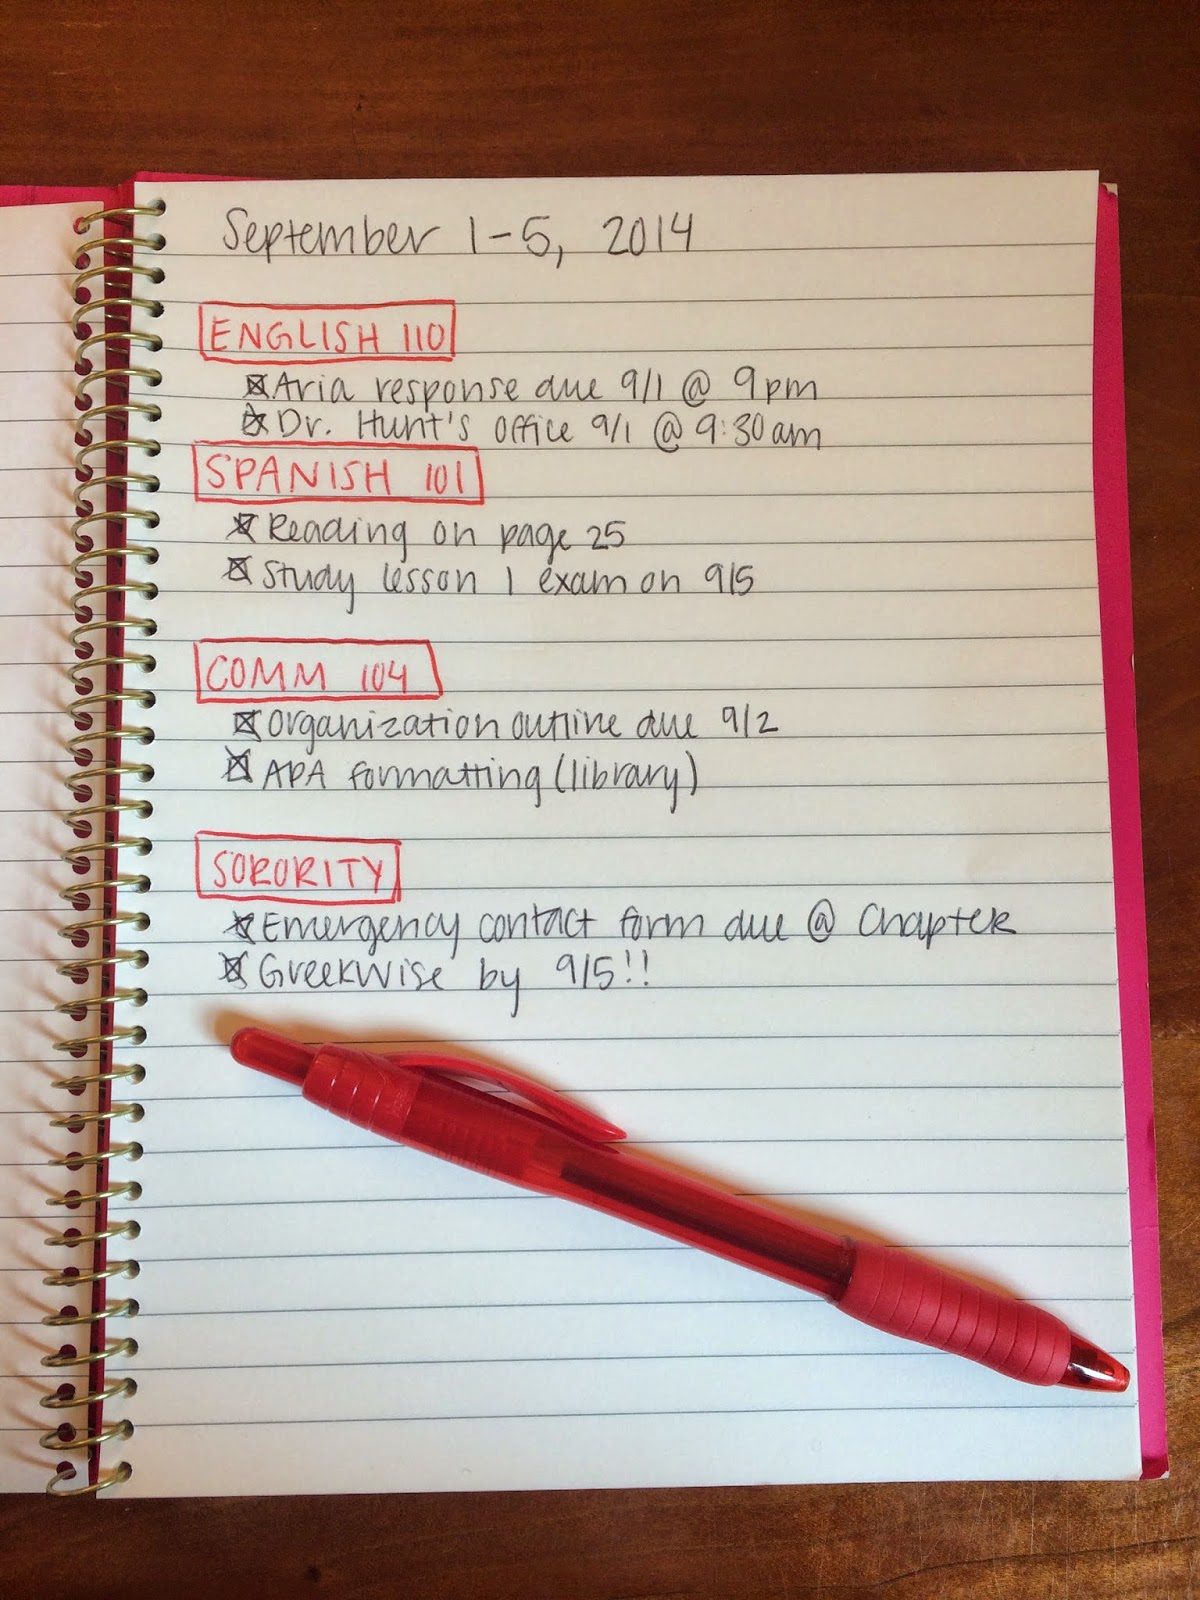 September 1-5, 2014
ENGLISH 110
☒ Aria response due 9/1 @ 9pm
☒ Dr. Hunt's office 9/1 @ 9:30am
SPANISH 101
☒ Reading on page 25
☒ Study lesson 1 exam on 9/5
COMM 104
☒ Organization outline due 9/2
☒ APA formatting (library)
SORORITY
☒ Emergency contact form due @ Chapter
☒ GreekWise by 9/5!!